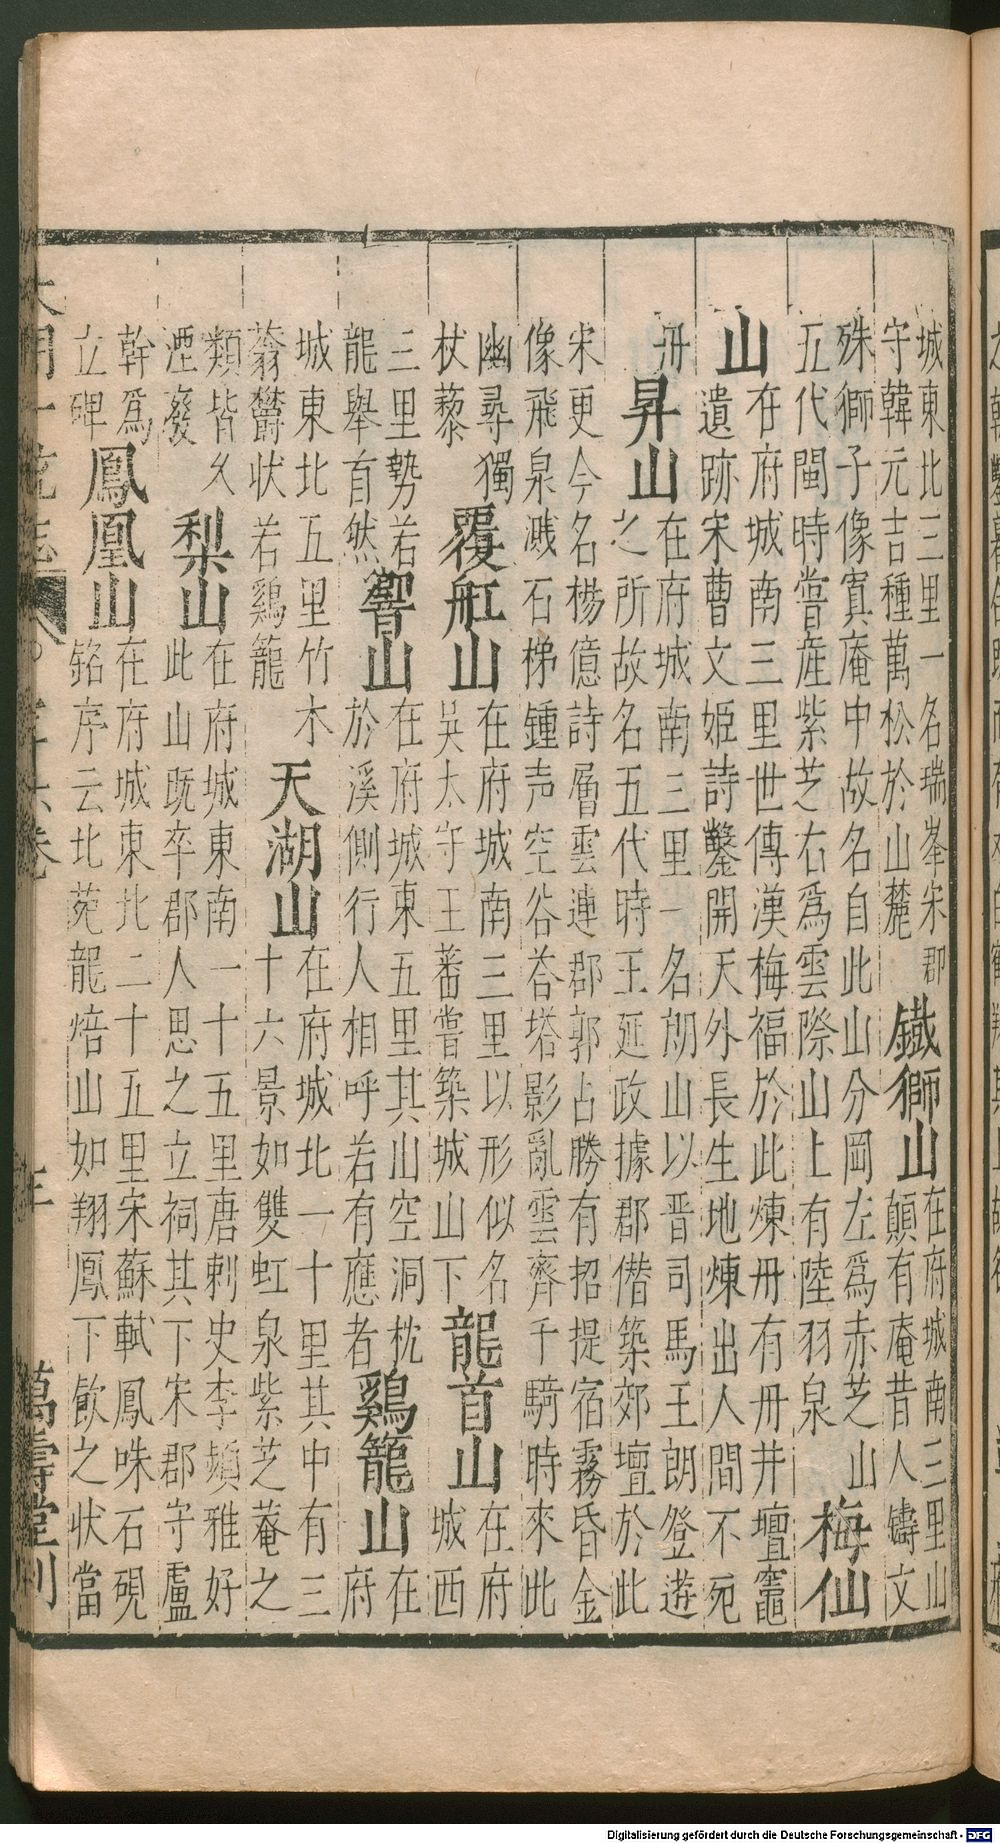 城東北三里一名瑞峯宋郡
守韓元吉種萬松於山麓
鐵獅山
在府城南三里山
顛有庵昔人鑄文
殊獅子像寘庵中故名自此山分岡左爲赤芝山
五代閩時嘗産紫芝右爲雲際山上有陸羽泉
梅仙
山
在府城南三里世傳漢梅福於此煉丹有丹井壇竈
遺跡宋曹文姬詩鑿開天外長生地煉出人間不死
丹
昇山
在府城南三里一名朗山以晋司馬王朗登遊
之所故名五代時王延政據郡僭築郊壇於此
宋更今名楊億詩層雲連郡郭占勝有招提宿霧昏金
像飛泉濺石梯鍾声空谷荅塔影亂雲齊千騎時來此
幽尋獨
杖藜
覆舡山
在府城南三里以形似名
吴太守王蕃嘗築城山下
龍首山
在府
城西
三里勢若
龍舉首然
響山
在府城東五里其山空洞枕
於溪側行人相呼若有應者
鷄籠山
在
府
城東北五里竹木
蓊欝状若鷄籠
天湖山
在府城北一十里其中有三
十六景如雙虹泉紫芝菴之
類皆久
湮廢
梨山
在府城東南一十五里唐刺史李頻雅好
此山既卒郡人思之立祠其下宋郡守盧
幹爲
立碑
鳳凰山
在府城東北二十五里宋蘇軾鳳咮石硯
銘序云北苑龍焙山如翔鳳下飲之状當
大明一統志
萬壽堂刊
Digitalisierung gefördert durch die Deutsche Forschungsgemeinschaft - DFG